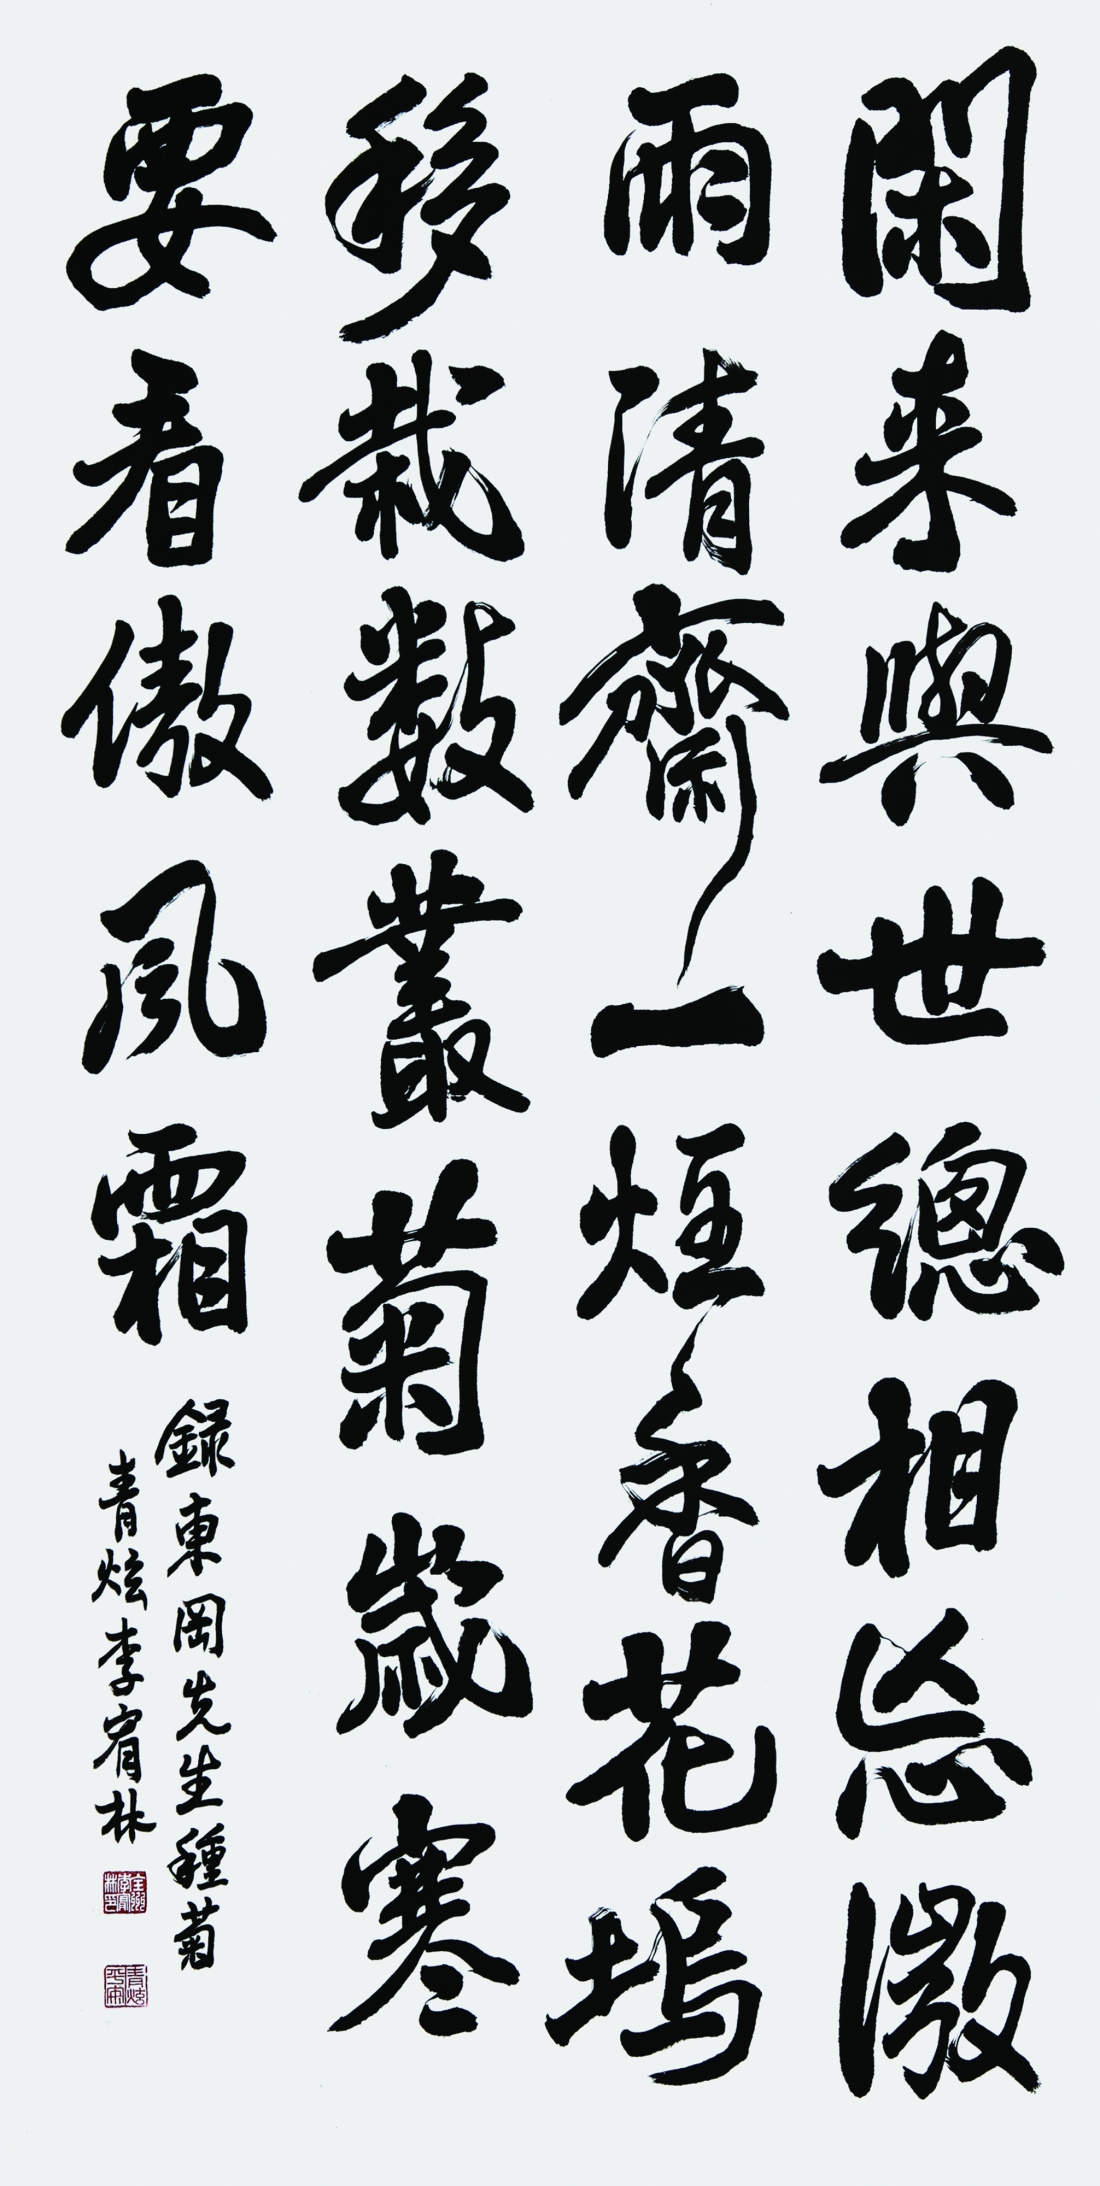 閑来與世總相忘微
雨清齋一炷香花塢
移栽數叢菊歲寒
要看傲風霜
録東岡先生種菊
青炫李宥林